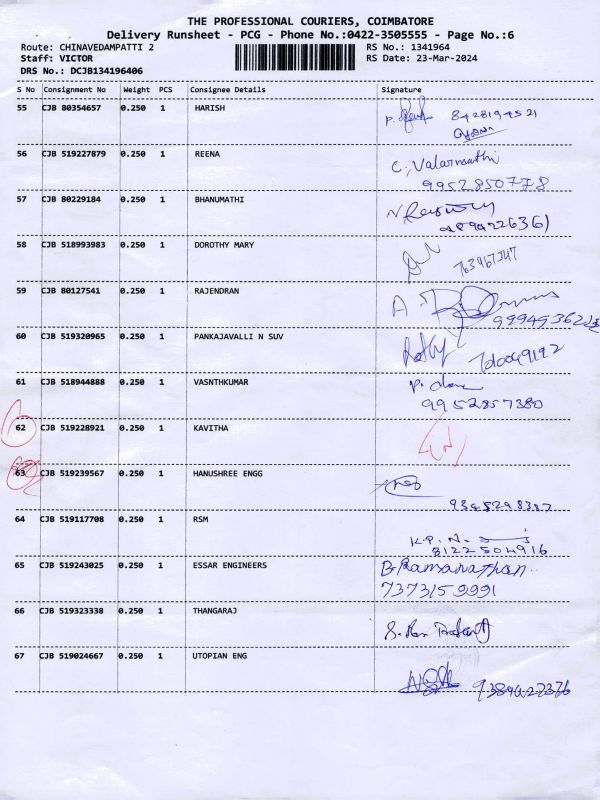 THE PROFESSIONAL COURIERS, COIMBATORE
Delivery Runsheet - PCG - Phone No.:0422-3505555 - Page No.:6
Route: CHINAVEDAMPATTI 2 RS No.: 1341964
Staff: VICTOR RS Date: 23-Mar-2024
DRS No.: DCJB134196406
S No Consignment No Weight PCS Consignee Details Signature
55 CJB 80354657 0.250 1 HARISH
8428194521
56 CJB 519227879 0.250 1 REENA
C. Valarmathi
9952850778
57 CJB 80229184 0.250 1 BHANUMATHI
58 CJB 518993983 0.250 1 DOROTHY MARY
59 CJB 80127541 0.250 1 RAJENDRAN
60 CJB 519320965 0.250 1 PANKAJAVALLI N SUV
61 CJB 518944888 0.250 1 VASNTHKUMAR
9952857380
62 CJB 519228921 0.250 1 KAVITHA
63 CJB 519239567 0.250 1 HANUSHREE ENGG
9345298387
64 CJB 519117708 0.250 1 RSM
K.P.N.
8122504916
65 CJB 519243025 0.250 1 ESSAR ENGINEERS
B. Ramanathan
7373159991
66 CJB 519323338 0.250 1 THANGARAJ
67 CJB 519024667 0.250 1 UTOPIAN ENG